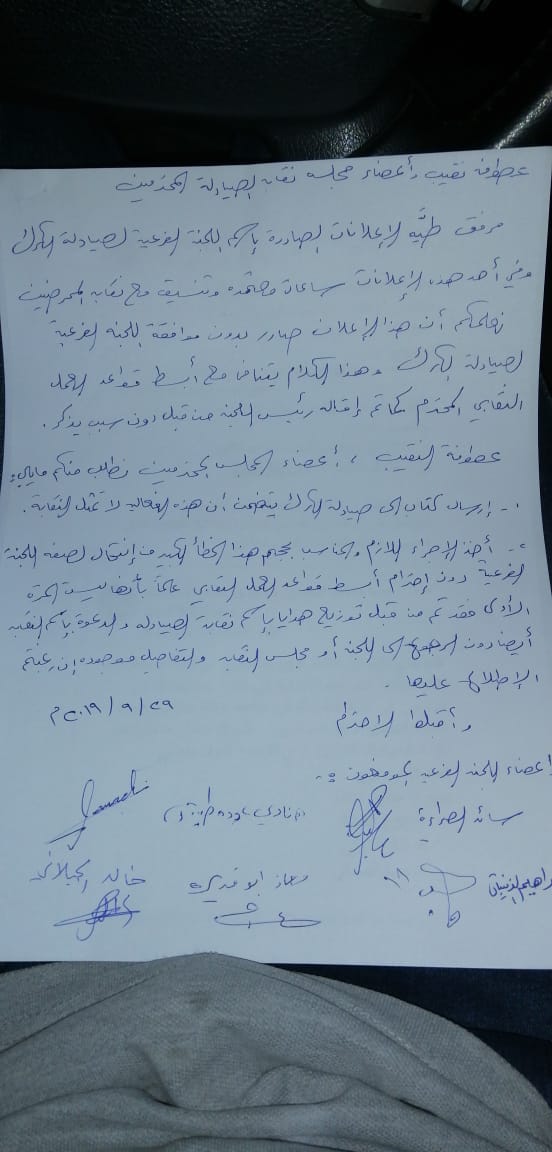 عطوفة نقيب وأعضاء مجلس نقابة الصيادلة المحترمين
مرفق طيَّه الإعلانات الصادرة بإسم اللجنة الفرعية لصيادلة الكرك
وفي أحد هذه الإعلانات ساعات معتمدة وتنسيق مع نقابة الممرضين
نعلمكم أن هذا الإعلان صادر بدون موافقة اللجنة الفرعية
لصيادلة الكرك وهذا الكلام يتنافى مع أبسط قواعد العمل
النقابي المحترم كما تم إقالة رئيس اللجنة من قبل دون سبب يذكر.
عطوفة النقيب ، أعضاء المجلس المحترمين نطلب منكم مايلي:
١- إرسال كتاب الى صيادلة الكرك يتضمن أن هذه الفعالية لا تمثل النقابة.
٢- أخذ الإجراء اللازم والمناسب بحجم هذا الخطأ الكبير من إنتحال لصفة اللجنة
الفرعية دون إحترام أبسط قواعد العمل النقابي علماً بأنها ليست المرة
الأولى فقد تم من قبل توزيع هدايا بإسم نقابة الصيادلة والدعوة بإسم النقابة
أيضا دون الرجوع الى اللجنة أو مجلس النقابة والتفاصيل موجودة إن رغبتم
الإطلاع عليها.
وأقبلوا الاحترام
٢٩ / ٩ / ٢٠١٩ م
أعضاء اللجنة الفرعية الموقعون :-
سائد الصرايرة
ابراهيم
معاذ ابو
خالد الجيلاني